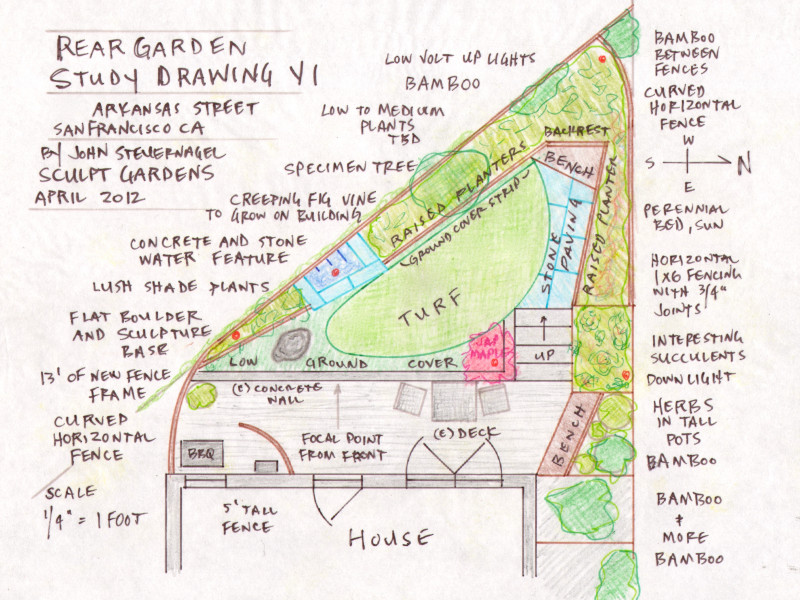 REAR GARDEN
STUDY DRAWING V1
ARKANSAS STREET
SAN FRANCISCO CA
BY JOHN STEUERNAGEL
SCULPT GARDENS
APRIL 2012
LOW VOLT UP LIGHTS
BAMBOO
LOW TO MEDIUM
PLANTS
TBD
SPECIMEN TREE
CREEPING FIG VINE
TO GROW ON BUILDING
CONCRETE AND STONE
WATER FEATURE
LUSH SHADE PLANTS
FLAT BOULDER
AND SCULPTURE
BASE
13' OF NEW FENCE
FRAME
CURVED
HORIZONTAL
FENCE
SCALE
1/4" = 1 FOOT
BACKREST
BENCH
RAISED PLANTERS
GROUND COVER STRIP
STONE
PAVING
RAISED PLANTER
TURF
JAP
MAPLE
UP
LOW GROUND COVER
(E) CONCRETE
WALL
FOCAL POINT
FROM FRONT
(E) DECK
BENCH
BBQ
5' TALL
FENCE
HOUSE
BAMBOO
BETWEEN
FENCES
CURVED
HORIZONTAL
FENCE
W
S
N
E
PERENNIAL
BED, SUN
HORIZONTAL
1X6 FENCING
WITH 3/4"
JOINTS
INTERESTING
SUCCULENTS
DOWNLIGHT
HERBS
IN TALL
POTS
BAMBOO
BAMBOO
+
MORE
BAMBOO